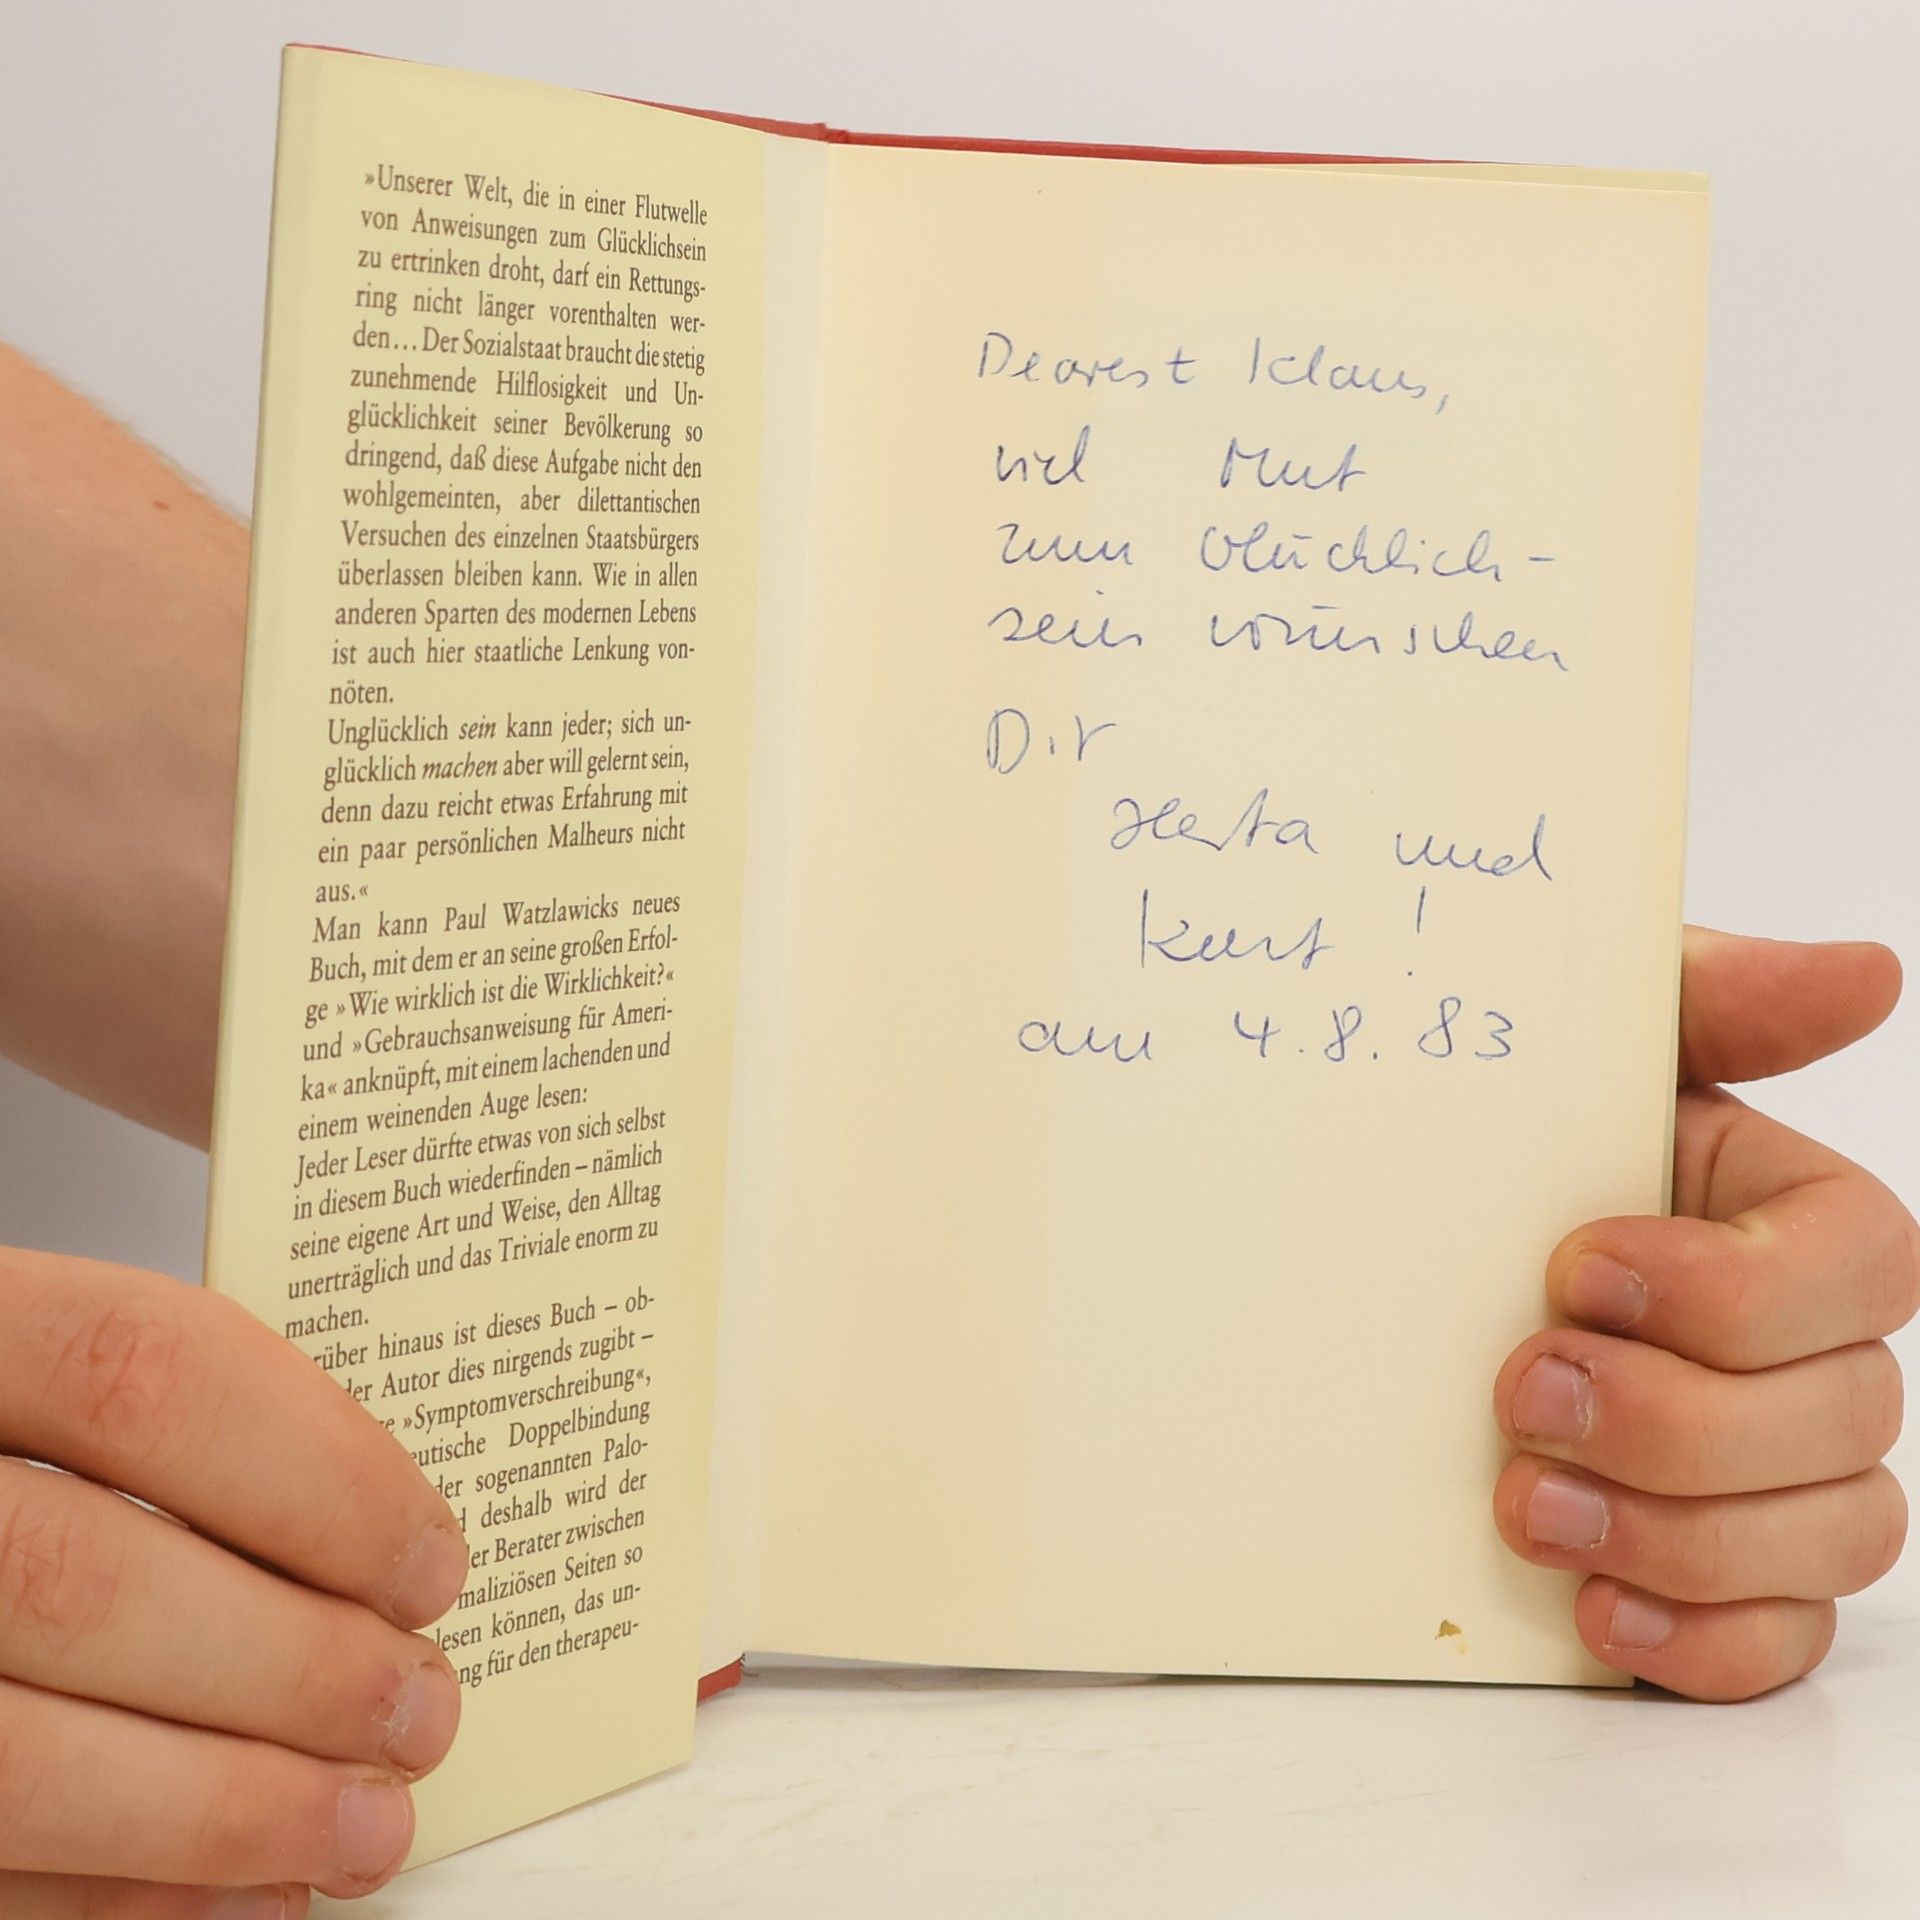 »Unserer Welt, die in einer Flutwelle
von Anweisungen zum Glücklichsein
zu ertrinken droht, darf ein Rettungs-
ring nicht länger vorenthalten wer-
den... Der Sozialstaat braucht die stetig
zunehmende Hilflosigkeit und Un-
glücklichkeit seiner Bevölkerung so
dringend, daß diese Aufgabe nicht den
wohlgemeinten, aber dilettantischen
Versuchen des einzelnen Staatsbürgers
überlassen bleiben kann. Wie in allen
anderen Sparten des modernen Lebens
ist auch hier staatliche Lenkung von-
nöten.
Unglücklich sein kann jeder; sich un-
glücklich machen aber will gelernt sein,
denn dazu reicht etwas Erfahrung mit
ein paar persönlichen Malheurs nicht
aus.«
Man kann Paul Watzlawicks neues
Buch, mit dem er an seine großen Erfol-
ge »Wie wirklich ist die Wirklichkeit?«
und »Gebrauchsanweisung für Ameri-
ka« anknüpft, mit einem lachenden und
einem weinenden Auge lesen:
Jeder Leser dürfte etwas von sich selbst
in diesem Buch wiederfinden – nämlich
seine eigene Art und Weise, den Alltag
unerträglich und das Triviale enorm zu
machen.
rüber hinaus ist dieses Buch – ob-
der Autor dies nirgends zugibt –
»Symptomverschreibung«,
eutische Doppelbindung
der sogenannten Palo-
deshalb wird der
er Berater zwischen
maliziösen Seiten so
lesen können, das un-
ng für den therapeu-
Dearest Klaus,
viel Mut
zum Glücklich-
sein wünschen
Dir
Herta und
Kurt !
am 4.8.83